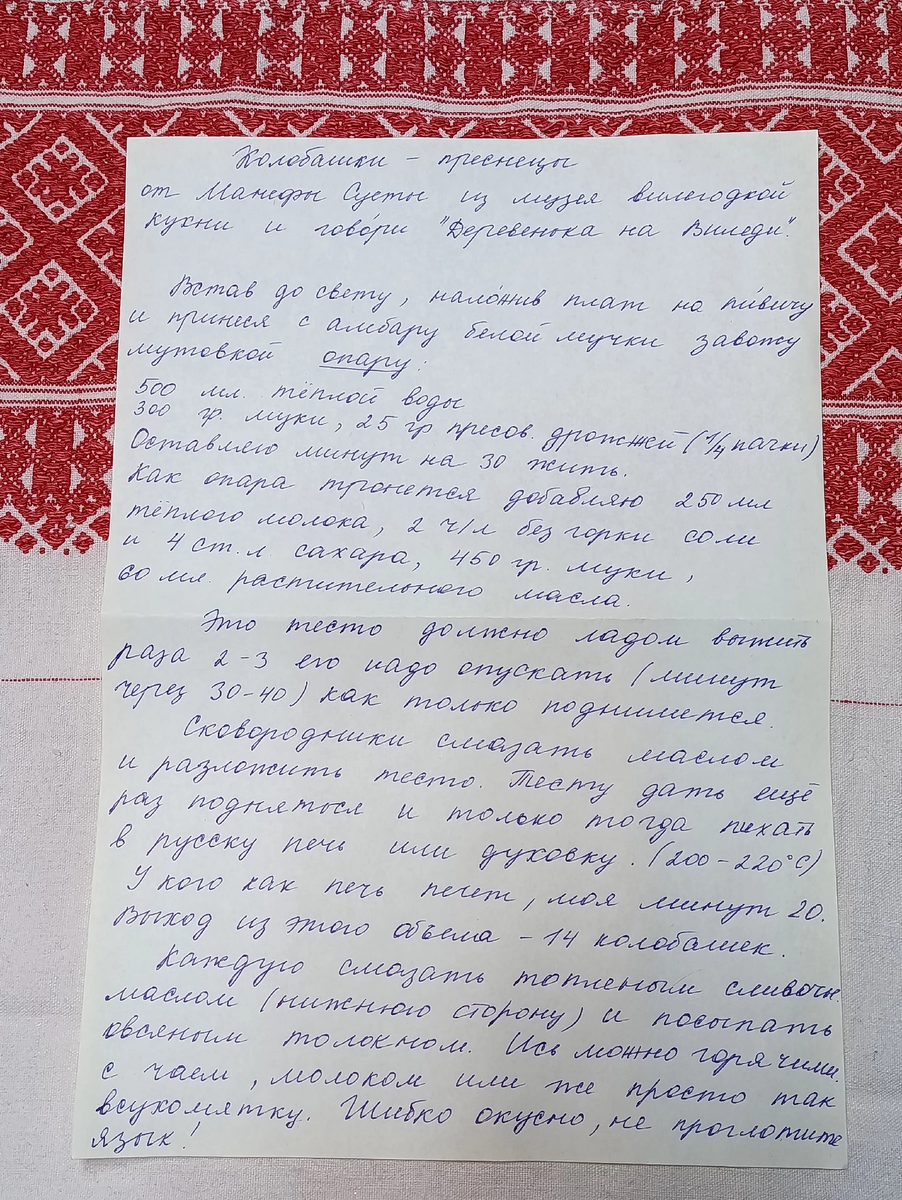 Колобашки - преснецы
от Манефы Суеты из музея вилегодкой
кухни и гово́ри "Деревенька на Виледи".
Встав до свету, нало́жив плат на пи́вичу
и принеся с амбару белой мучки завожу
мутовкой опару:
500 мл. тёплой воды
300 гр. муки, 25 гр. пресов. дрожжей (1/4 пачки)
Оставляю минут на 30 жить.
Как опара тронется добавляю 250 мл
тёплого молока, 2 ч/л без горки соли
и 4 ст. л. сахара, 450 гр. муки,
60 мл. растительного масла.
Это тесто должно ладом выжить
раза 2-3 его надо опускать (минут
через 30-40) как только поднимется.
Сковородники смазать маслом
и разложить тесто. Тесту дать ещё
раз подняться и только тогда пихать
в русску печь или духовку. (200-220°С)
У кого как печь печет, моя минут 20.
Выход из этого объема - 14 колобашек.
Каждую смазать топленым сливочн.
маслом (нижнюю сторону) и посыпать
овсяным толокном. Ись можно горячими
с чаем, молоком или же просто так
всухомятку. Шибко окусно, не проглотите
язык!